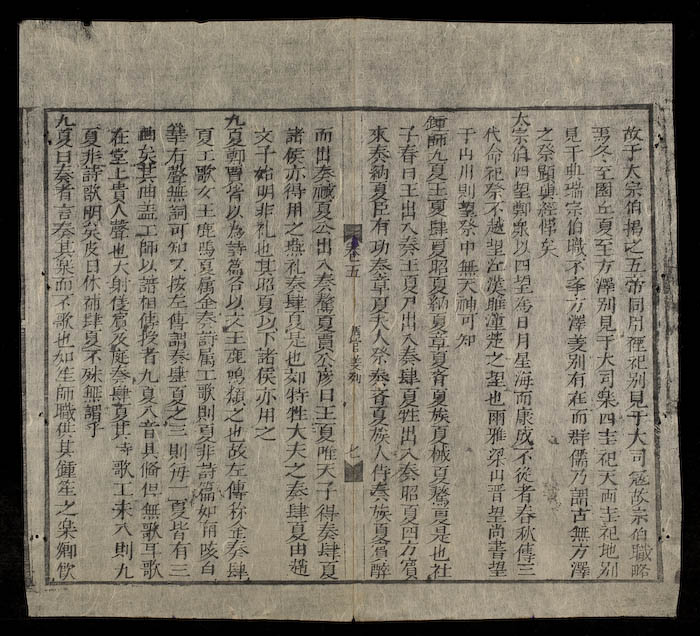 故于大宗伯揭之五帝同用禋祀别見于大司寇故宗伯職略
焉冬至圜丘夏至方澤别見于大司樂四圭祀天兩圭祀地别
見于典瑞宗伯職不夅方澤羙别有在而群儒乃謂古無方澤
之祭顯與經悖矣
大宗伯四望鄭衆以四望為日月星海而康成不從者春秋傳三
代命祀祭不越望江漢睢漳楚之望也爾雅梁山晋望尚書望
于山川則望祭中無天神可知
鍾師九夏王夏肆夏昭夏納夏章夏斉夏族夏祴夏驁夏是也杜
子春曰王出入奏王夏尸出入奏肆夏牲出入奏昭夏四方賓
來奏納夏臣有功奏章夏夫人祭奏斉夏族人侍奏族夏賓醉
而出奏祴夏公出入奏驁夏賈公彦曰王夏唯天子得奏肆夏
諸侯亦得用之燕礼奏肆夏是也郊特牲大夫之奏肆夏由趙
文子始明非礼也其昭夏以下諸侯亦用之
九夏鄭吕皆以為詩篇名以文王鹿鳴類之也故左傳称金奏肆
夏工歌文王鹿鳴夏属金奏詩属工歌則夏非詩篇如南陔白
華有聲無詞可知又按左傳謂奏肆夏之三則每一夏皆有三
曲矣其曲盖工師以譜相傳按者九夏八音具俻但無歌耳歌
在堂上貴人聲也大射儀賓及庭奏肆夏其時歌工未入則九
夏非詩歌明矣皮日休補肆夏不殊無謂乎
九夏曰奏者言奏其樂而不歌也如笙師職供其鍾笙之樂鄉飲
卷五
周官羙
七